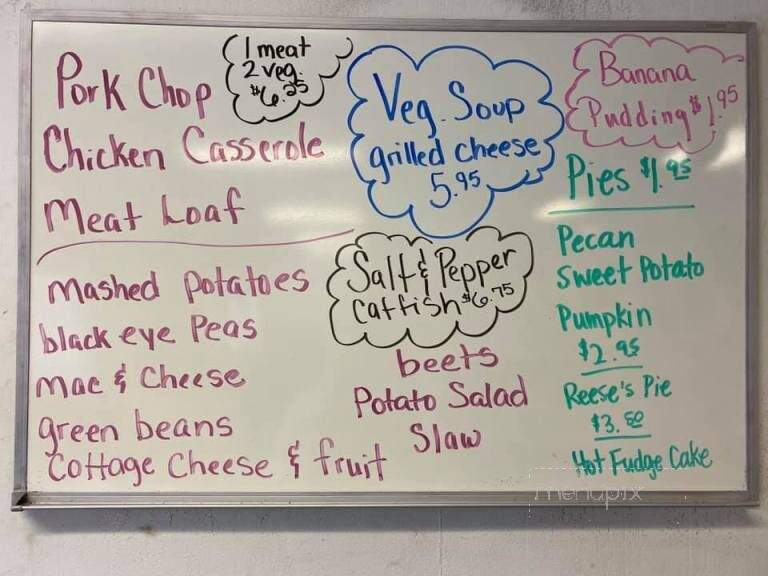 Pork Chop
Chicken Casserole
Meat Loaf
1 meat
2 veg.
$6.25
mashed potatoes
black eye Peas
mac & Cheese
green beans
Cottage Cheese & fruit
Veg. Soup
grilled cheese
5.95
Salt & Pepper
Catfish $6.75
beets
Potato Salad
Slaw
Banana
Pudding $1.95
Pies $1.95
Pecan
Sweet Potato
Pumpkin
$2.95
Reese's Pie
$3.50
Hot Fudge Cake
menupix